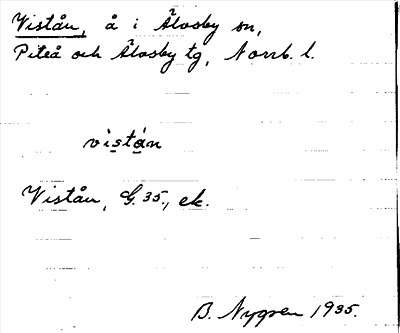 Vistån, å i Älvsby sn,
Piteå och Älvsby tg, Norrb. l.
vistån
Vistån, G. 35., ek.
B. Nygren 1935.